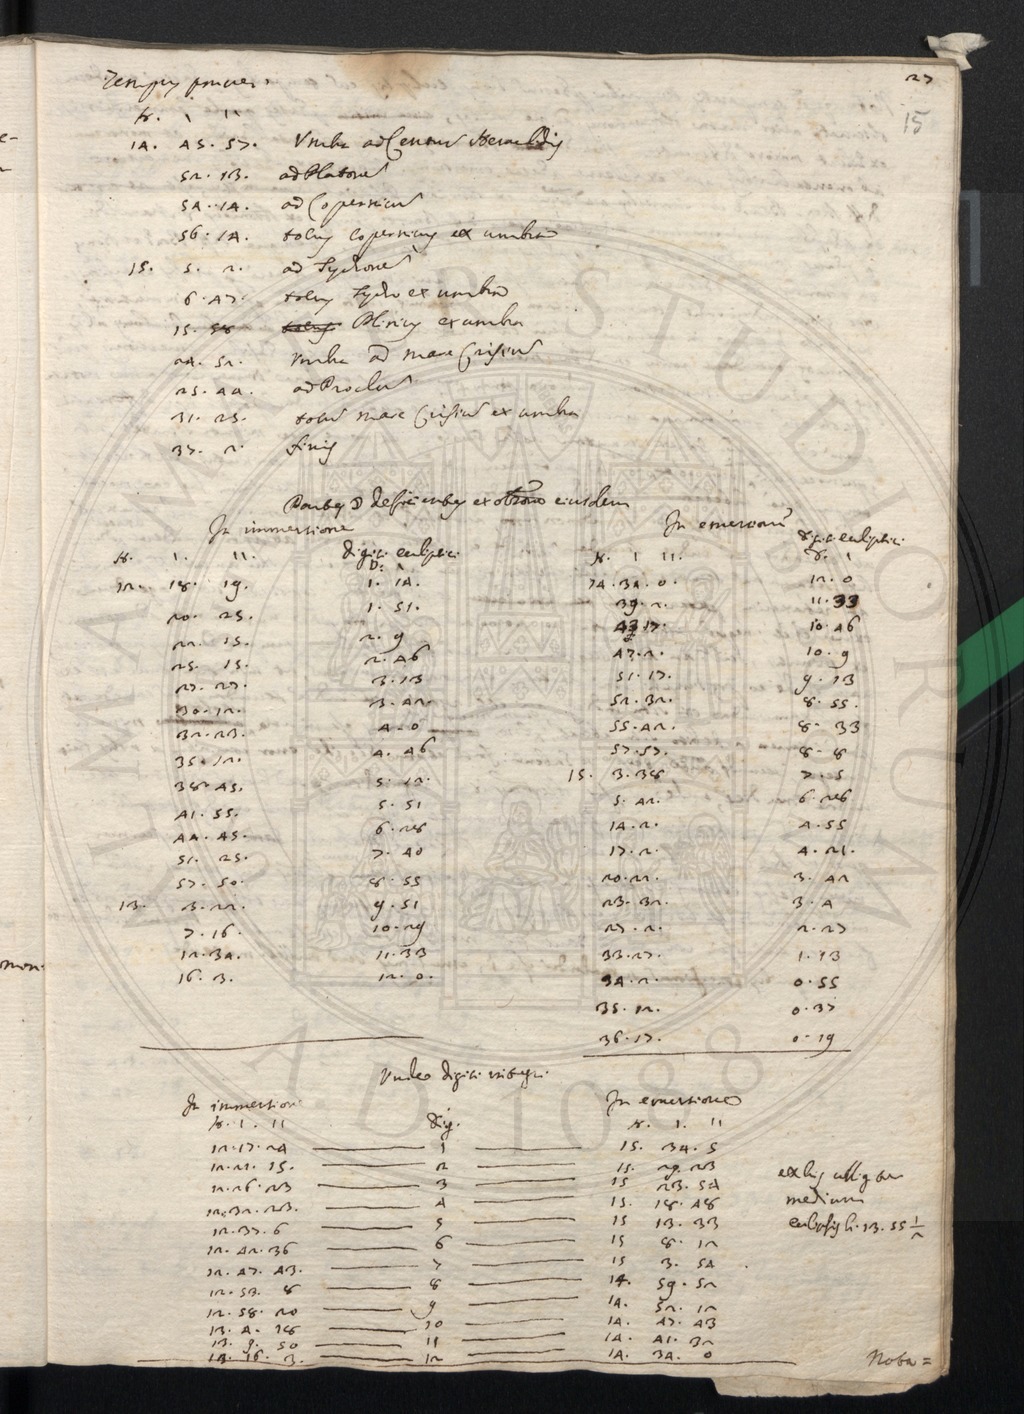 Tempus
27
15
H. ' ''
14. 45. 57. Umbra ad Centrum Heraclidis
52. 13. ad Platonem
54. 14. ad Copernicum
56. 14. totus Copernicus ex umbra
15. 5. 2. ad Tychonem
6. 47. totus Tycho ex umbra
15. 58 Plinius ex umbra
24. 52. Umbra ad mare Crisium
25. 44. ad Proclum
31. 25. totum mare Crisium ex umbra
37. 2. finis
Partes ☽ deficientes ex eiusdem
In immersione
H. ' ''. Digiti ecliptici
D. '
12. 18. 19. 1. 14.
20. 25. 1. 51.
22. 15. 2. 9
25. 15. 2. 46
27. 27. 3. 13
30. 12. 3. 42.
32. 23. 4. 0
35. 12. 4. 46
38. 45. 5. 12.
41. 55. 5. 51
44. 45. 6. 28
51. 25. 7. 40
57. 50. 8. 55
13. 3. 22. 9. 51
7. 16. 10. 29
12. 34. 11. 33
16. 3. 12. 0.
In emersione
H. ' ''. Digiti ecliptici
14. 34. 0. 12. 0
39. 2. 11. 33
43 17. 10. 46
47. 2. 10. 9
51. 17. 9. 13
52. 32. 8. 55.
55. 42. 8. 33
57. 57. 8. 8
15. 3. 38 7. 5
5. 42. 6. 26
14. 2. 4. 55
17. 2. 4. 21.
20. 22. 3. 42
23. 32. 3. 4
27. 2. 2. 27
33. 27. 1. 13
34. 2. 0. 55
35. 12. 0. 37
36. 17. 0. 19
Unde digiti integri
In immersione Dig. In emersione
H. ' '' H. ' ''
12. 17. 24 1 15. 34. 5
12. 21. 15. 2 15. 29. 23
12. 26. 23 3 15 23. 54
12. 32. 23. 4 15. 18. 48
12. 37. 6 5 15 13. 33
12. 42. 36 6 15 8. 12
12. 47. 43. 7 15 3. 54
12. 53. 8 8 14. 59. 52
12. 58. 20 9 14. 52. 12
13. 4. 18 10 14. 47. 43
13. 9. 50 11 14. 41. 32
13. 16. 3. 12 14. 34. 0
ex his
medium
eclipsis h. 13. 55 1/2
Nota=